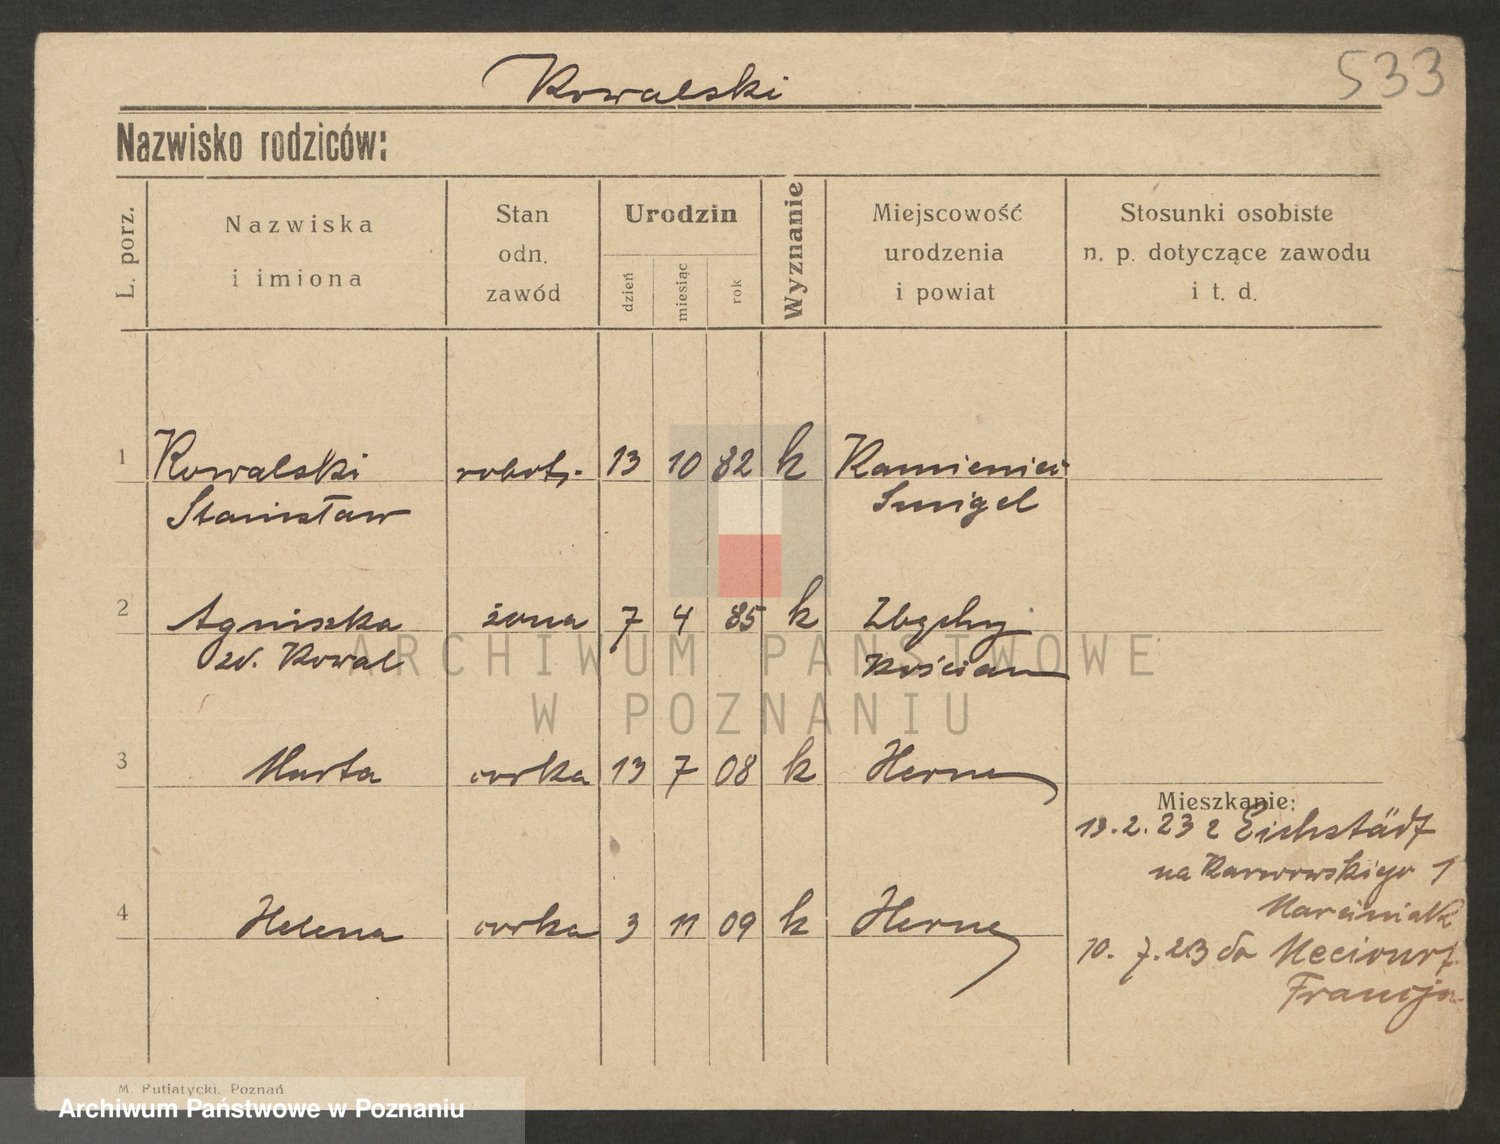 Kowalski
533
Nazwisko rodziców:
L. porz.
Nazwiska
i imiona
Stan
odn.
zawód
Urodzin
dzień
miesiąc
rok
Wyznanie
Miejscowość
urodzenia
i powiat
Stosunki osobiste
n. p. dotyczące zawodu
i t. d.
1 Kowalski robotn. 13 10 82 k Kamieniec
Stanisław Smigel
2 Agniszka żona 7 4 85 k Zbęchy
zd. Kowal Kościan
3 Marta córka 13 7 08 k Herne
Mieszkanie:
13.2.23 z Eichstädt
na Karwowskiego 1
Marciniak
4 Helena córka 3 11 09 k Herne
10. 7.23 do
Francja
M. Putiatycki, Poznań
ARCHIWUM PAŃSTWOWE
W POZNANIU
Archiwum Państwowe w Poznaniu